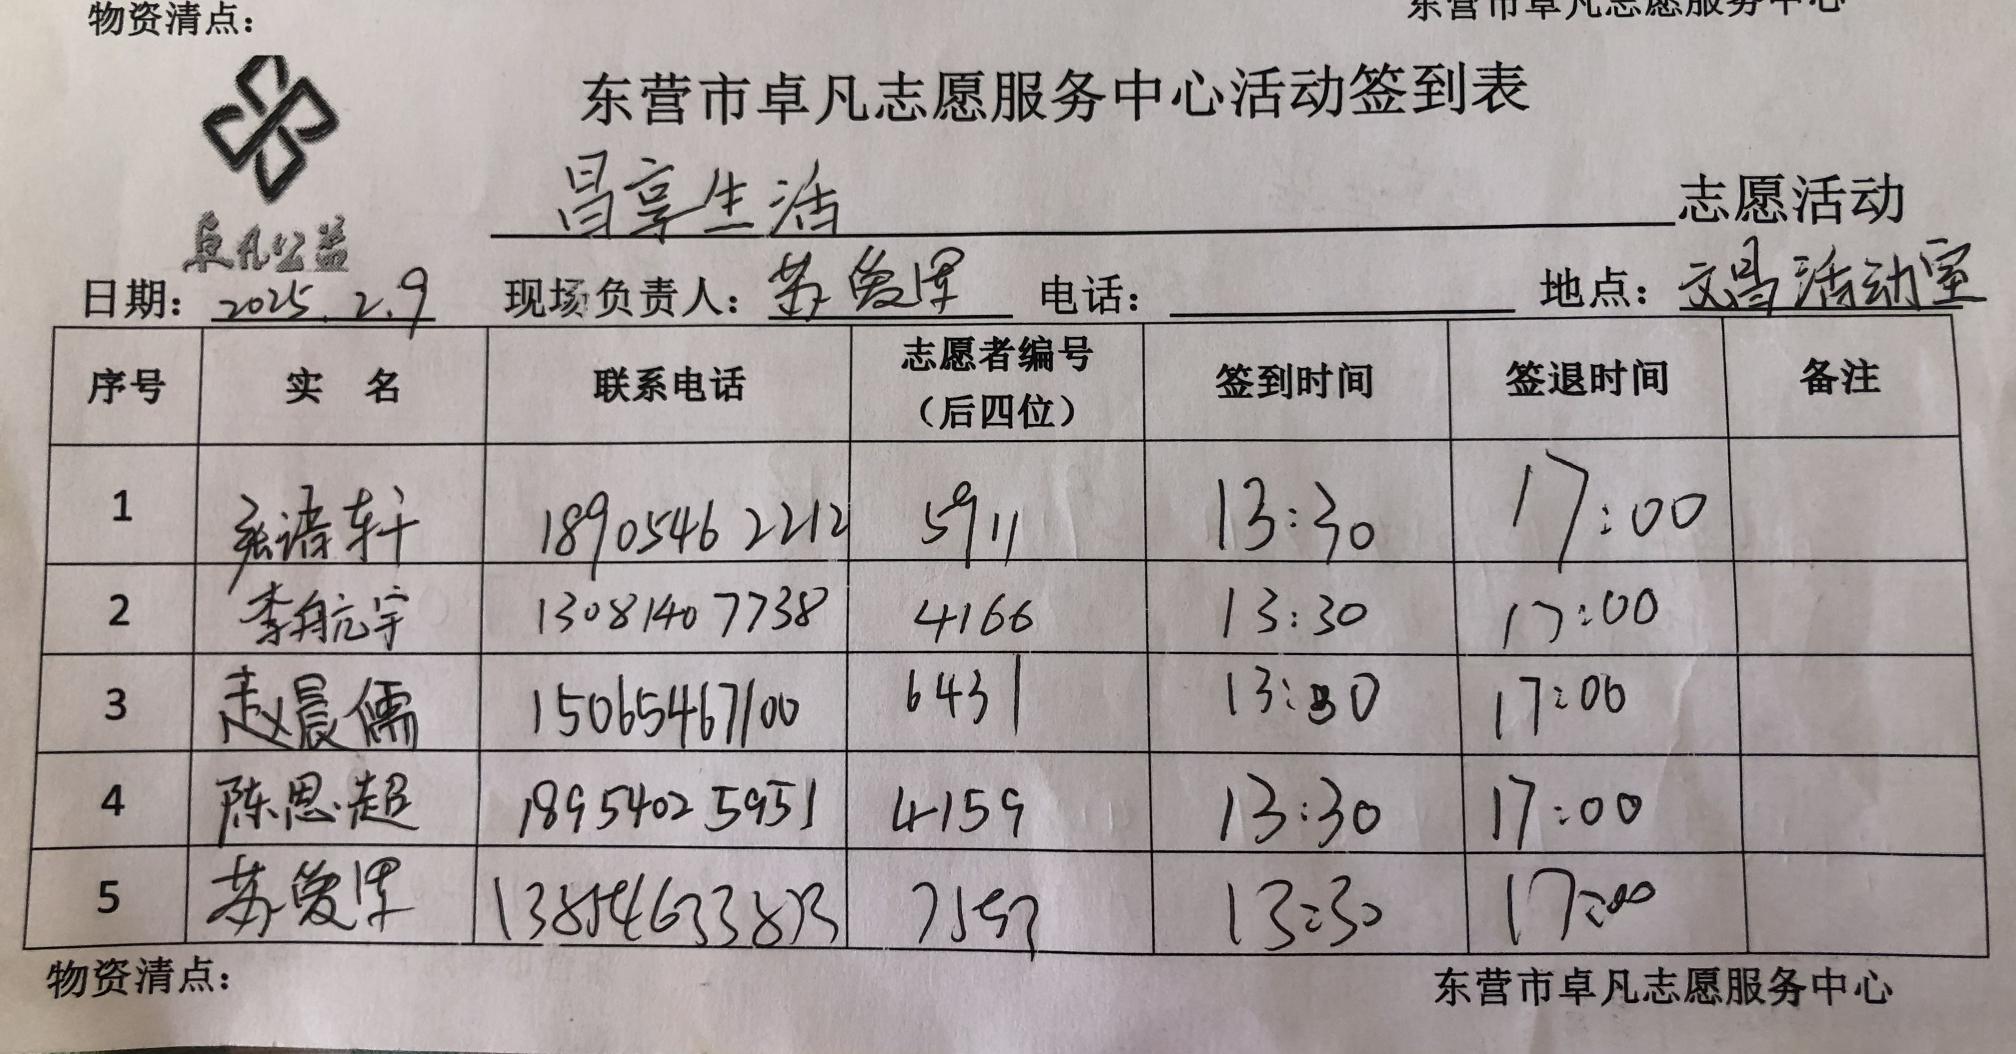 物资清点： 东营市卓凡志愿服务中心
东营市卓凡志愿服务中心活动签到表
昌享生活 志愿活动
卓凡公益
日期：2025.2.9 现场负责人：苏爱军 电话： 地点：文昌活动室
序号 实 名 联系电话 志愿者编号（后四位） 签到时间 签退时间 备注
1 张诸轩 18905462212 5911 13:30 17:00
2 李航宇 13081407738 4166 13:30 17:00
3 赵晨儒 15065467100 6431 13:30 17:00
4 陈思超 18954025951 4159 13:30 17:00
5 苏爱军 13854633873 13:30 17:00
物资清点： 东营市卓凡志愿服务中心